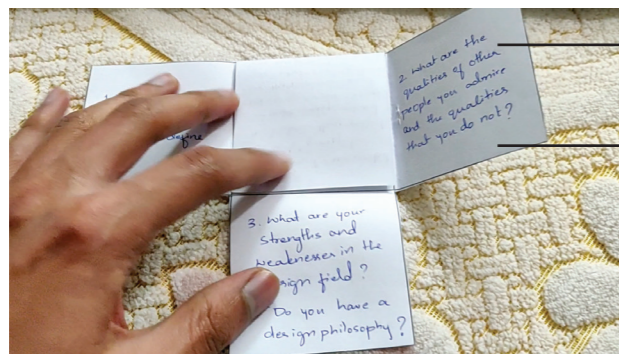 1.
define
2. what are the
qualities of other
people you admire
and the qualities
that you do not?
3. What are your
strengths and
weaknesses in the
field?
Do you have a
design philosophy?